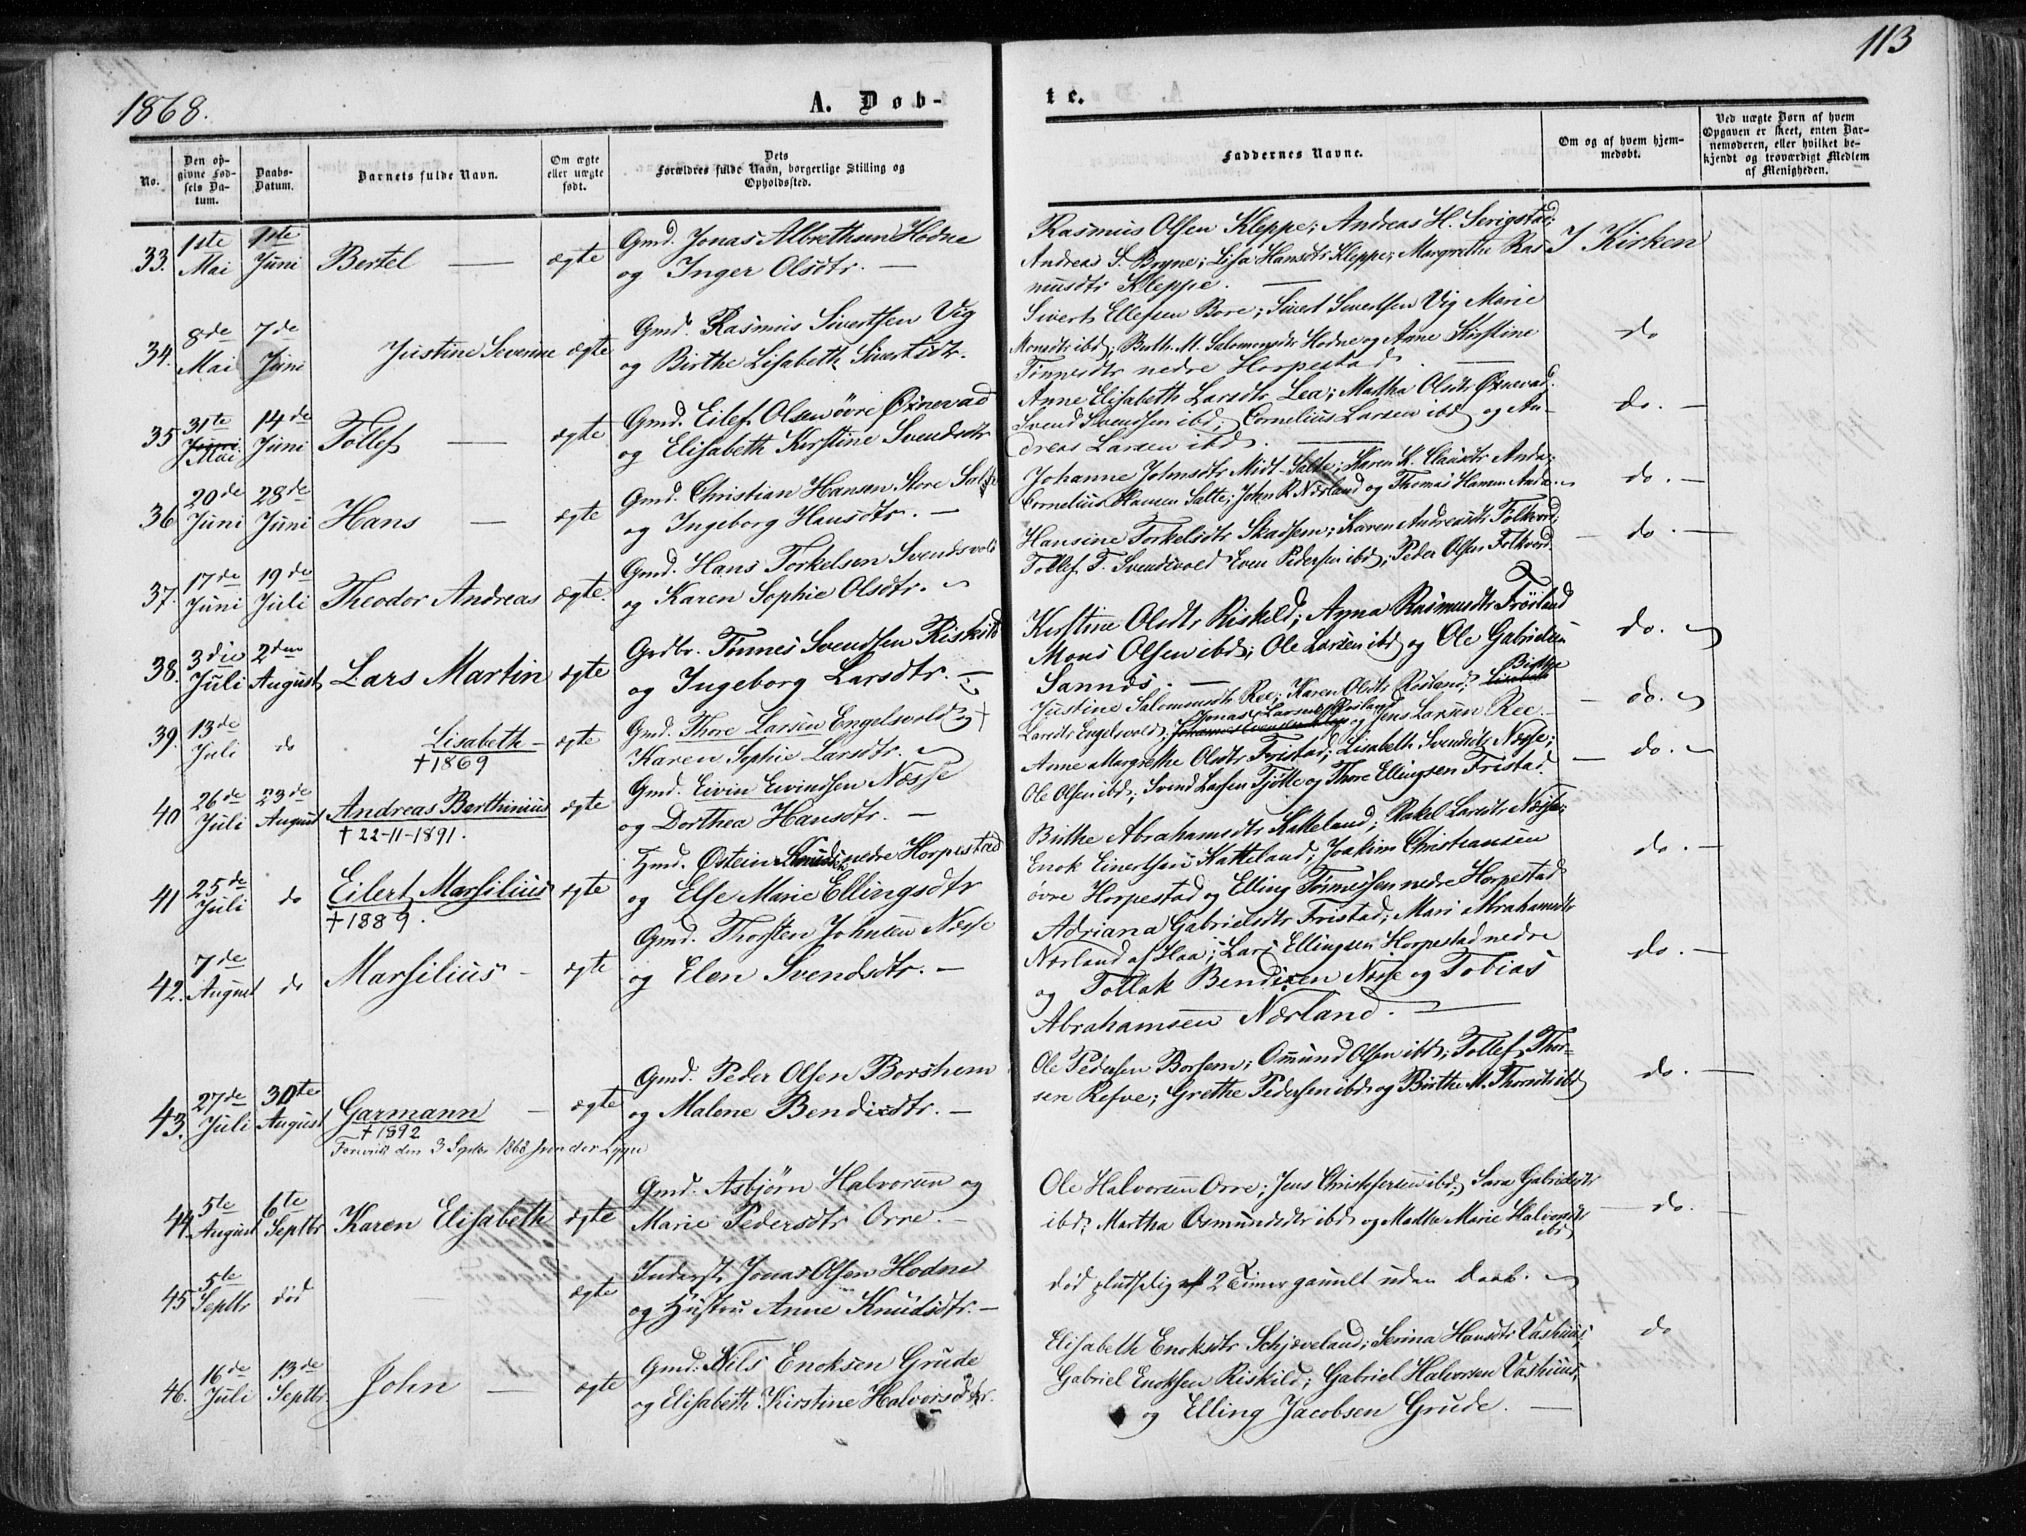 113
1868.
A. Døb-
te.
No.
Den op-
givne Fød-
sels Da-
tum.
Daabs-
Datum.
Barnets fulde Navn.
Om ægte
eller uægte
født.
Dets
Forældres fulde Navn, borgerlige Stilling og
Opholdssted.
Faddernes Navne.
Om og af hvem hjem-
medøbt.
Ved uægte Børn af hvem
Opgaven er skeet, enten Bar-
nemoderen, eller hvilket be-
kjendt og troværdigt Medlem
af Menigheden.
33. 1ste Mai 1ste Juni Bertel — ægte
Gmd. Jonas Albrethsen Hodne
og Inger Olsdtr. —
Rasmus Olsen Kleppe; Andreas H. Serigstad;
Andreas S. Bryne; Lisa Hansdtr Kleppe; Margrethe Ras-
musdtr Kleppe. —
I Kirken
34. 8de Mai 7de Juni Justine Severine ægte
Gmd. Rasmus Sivertsen Vig
og Birthe Lisabeth Sivertsdtr.
Sivert Ellefsen Bore; Sivert Sivertsen Vig Marie
Monsdtr ibd; Berth. M. Salomonsdtr Hodne og Anne Kirstine
Tønnesdtr nedre Horpestad
do
35 31te Juni Mai 14de Juni Tollef — ægte
Gmd. Eilef Olsen övre Øxnevad
og Elisabeth Kirstine Svendsdtr
Anne Elisabeth Larsdtr Lea; Martha Olsdtr Øxnevad
Svend Svendsen ibd; Cornelius Larsen ibd og An-
dreas Larsen ibd. —
do. —
36 20de Juni 28de Juni Hans — ægte
Gmd. Christian Hansen Store Salte
og Ingeborg Hansdtr. —
Johanne Johnsdtr Midt-Salte; Karen K. Clausdtr Anda;
Cornelius Hansen Salte; John R. Nærland og Thomas Hansen Anda.
do. —
37. 17de Juni 19de Juli Theodor Andreas ægte.
Gmd. Hans Torkelsen Svendsvold
og Karen Sophie Olsdtr.
Hansine Torkelsdtr Skadsem; Karen Andreasdtr Folkvord;
Tollef T. Svendsvold Even Pedersen ibd; Peder Olsen Folkvord.
do. —
38. 3die Juli 2den August Lars Martin ægte
Grdbr. Tönnes Svendsen Riskild
og Ingeborg Larsdtr. —
Kirstine Olsdtr Riskild; Anna Rasmusdtr Fröiland
Mons Olsen ibd; Ole Larsen ibd og Ole Gabrielsen
Sannes. —
do.
39. 13de Juli do Lisabeth — ægte
+ 1869
Gmd. Thore Larsen Engelsvold og
Karen Sophie Larsdtr.
Justine Salomonsdtr Ree; Karen Olsdtr Rosland; Birthe
Larsdtr Engelsvold; Jonas Larsen Rosland og Jens Larsen Ree.
do.
40 26de Juli 23de August Andreas Berthinius ægte
+ 22-11-1891.
Gmd. Eivin Eivindsen Næsse
og Dorthea Hansdtr. —
Anne Margrethe Olsdtr Fristad; Lisabeth Svendsdtr Næsse;
Ole Olsen ibd; Svend Larsen Tjötte og Thore Ellingsen Fristad.
do.
41 25de Juli do Eilert Marsilius ægte
+ 1889.
Hmd. Østein nedre Horpestad
og Else Marie Ellingsdtr
Birthe Abrahamsdtr Hatteland; Rakel Larsdtr Næsse;
Enok Einertsen Hatteland; Joakim Christiansen
övre Horpestad og Elling Tönnessen nedre Horpestad
do. —
42. 7de August do Marsilius — ægte
Gmd. Thorsten Johnsen Næsse
og Elen Svendsdtr. —
Adriana Gabrielsdtr Fristad; Mari Abrahamsdtr
Nærland af Haa; Lars Ellingsen Horpestad nedre
og Tollak Bendixen Næsse og Tobias
Abrahamsen Nærland. —
do. —
43. 27de Juli 30te August Garmann — ægte
+ 1892
Gmd. Peder Olsen Borshem
og Malene Bendixdtr. —
Ole Pedersen Borsem; Omund Olsen ibd; Tollef Thor-
sen Refve; Grethe Pedersen ibd og Birthe M. Thorsdtr ibd
do. —
44. 5te August 6te Septbr Karen Elisabeth ægte
Gmd. Asbjørn Halvorsen og
Marie Pedersdtr Orre. —
Ole Halvorsen Orre; Jens Christophersen ibd; Sara Gabrielsdtr
ibd; Martha Osmundsdtr ibd og Marthe Marie Halvorsdtr
ibd
do.
45 5te Septbr død ægte
Inderst. Jonas Olsen Hodne
og Hustru Anne Knudsdtr. —
død pludselig 2 Timer gamelt uden Daab.
46. 16de Juli 13de Septbr. John — ægte
Gmd. Nils Enoksen Grude
og Elisabeth Kirstine Halvorsdtr.
Elisabeth Enoksdtr Schjæveland; Serina Hansdtr Vashuus;
Gabriel Enoksen Riskild; Gabriel Halvorsen Vashuus,
og Elling Jacobsen Grude. —
do